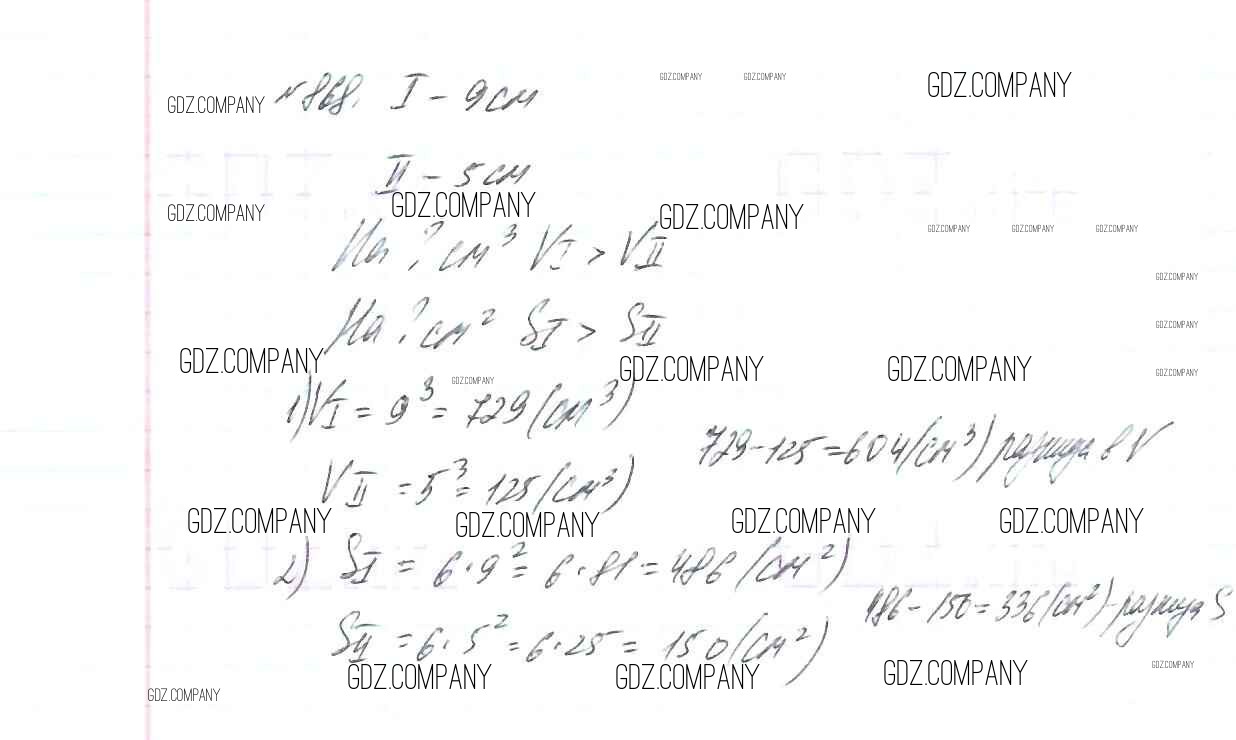 GDZ.COMPANY GDZ.COMPANY GDZ.COMPANY
GDZ.COMPANY №868. I - 9 см
II - 5 см
GDZ.COMPANY GDZ.COMPANY GDZ.COMPANY
GDZ.COMPANY GDZ.COMPANY GDZ.COMPANY
На ? см³ VI > VII
GDZ.COMPANY
На ? см² SI > SII
GDZ.COMPANY
GDZ.COMPANY GDZ.COMPANY GDZ.COMPANY GDZ.COMPANY
GDZ.COMPANY
1) VI = 9³ = 729 (см³)
729 - 125 = 604 (см³) разница в V
VII = 5³ = 125 (см³)
GDZ.COMPANY GDZ.COMPANY GDZ.COMPANY GDZ.COMPANY
2) SI = 6 · 9² = 6 · 81 = 486 (см²)
486 - 150 = 336 (см²) - разница S
SII = 6 · 5² = 6 · 25 = 150 (см²)
GDZ.COMPANY GDZ.COMPANY GDZ.COMPANY GDZ.COMPANY
GDZ.COMPANY